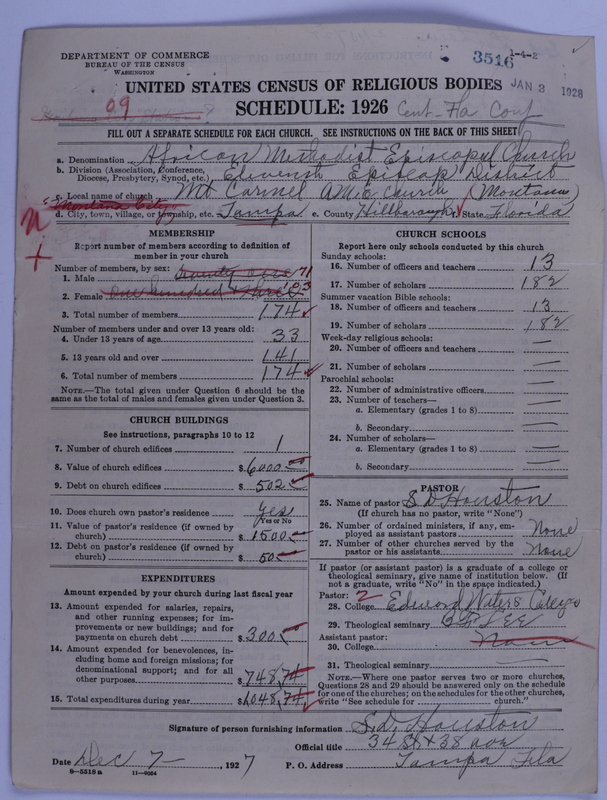 DEPARTMENT OF COMMERCE
BUREAU OF THE CENSUS
WASHINGTON
3516
1-4-2
JAN 3 1928
UNITED STATES CENSUS OF RELIGIOUS BODIES
SCHEDULE: 1926
09
Cent. Fla Conf
FILL OUT A SEPARATE SCHEDULE FOR EACH CHURCH. SEE INSTRUCTIONS ON THE BACK OF THIS SHEET
a. Denomination African Methodist Episcopal Church
b. Division (Association, Conference, Diocese, Presbytery, Synod, etc.) Eleventh Episcop District
c. Local name of church Mt Carmel A.M.E. Church (Montana)
d. City, town, village, or township, etc. Tampa e. County Hillborough State Florida
MEMBERSHIP
Report number of members according to definition of member in your church
Number of members, by sex:
1. Male 71
2. Female 103
3. Total number of members 174
Number of members under and over 13 years old:
4. Under 13 years of age 33
5. 13 years old and over 141
6. Total number of members 174
NOTE.—The total given under Question 6 should be the same as the total of males and females given under Question 3.
CHURCH BUILDINGS
See instructions, paragraphs 10 to 12
7. Number of church edifices 1
8. Value of church edifices $6000
9. Debt on church edifices $502
10. Does church own pastor's residence? Yes
Yes or No
11. Value of pastor's residence (if owned by church) $1500
12. Debt on pastor's residence (if owned by church) $50
EXPENDITURES
Amount expended by your church during last fiscal year
13. Amount expended for salaries, repairs, and other running expenses; for improvements or new buildings; and for payments on church debt $300
14. Amount expended for benevolences, including home and foreign missions; for denominational support; and for all other purposes $748.74
15. Total expenditures during year $1,048.74
CHURCH SCHOOLS
Report here only schools conducted by this church
Sunday schools:
16. Number of officers and teachers 13
17. Number of scholars 182
Summer vacation Bible schools:
18. Number of officers and teachers 13
19. Number of scholars 182
Week-day religious schools:
20. Number of officers and teachers —
21. Number of scholars —
Parochial schools:
22. Number of administrative officers —
23. Number of teachers—
a. Elementary (grades 1 to 8) —
b. Secondary —
24. Number of scholars—
a. Elementary (grades 1 to 8) —
b. Secondary —
PASTOR
25. Name of pastor S D Houston
(If church has no pastor, write "None")
26. Number of ordained ministers, if any, employed as assistant pastors None
27. Number of other churches served by the pastor or his assistants None
If pastor (or assistant pastor) is a graduate of a college or theological seminary, give name of institution below. (If not a graduate, write "No" in the space indicated.)
Pastor: 2
28. College Edward Waters College
29. Theological seminary B F LEE
Assistant pastor:
30. College None
31. Theological seminary —
NOTE.—Where one pastor serves two or more churches, Questions 28 and 29 should be answered only on the schedule for one of the churches; on the schedules for the other churches, write "See schedule for ........ church."
Signature of person furnishing information S. D. Houston
Official title 34 St & 38 ave
Date Dec 7—, 1927 P. O. Address Tampa Fla
8-5518a 11-9054